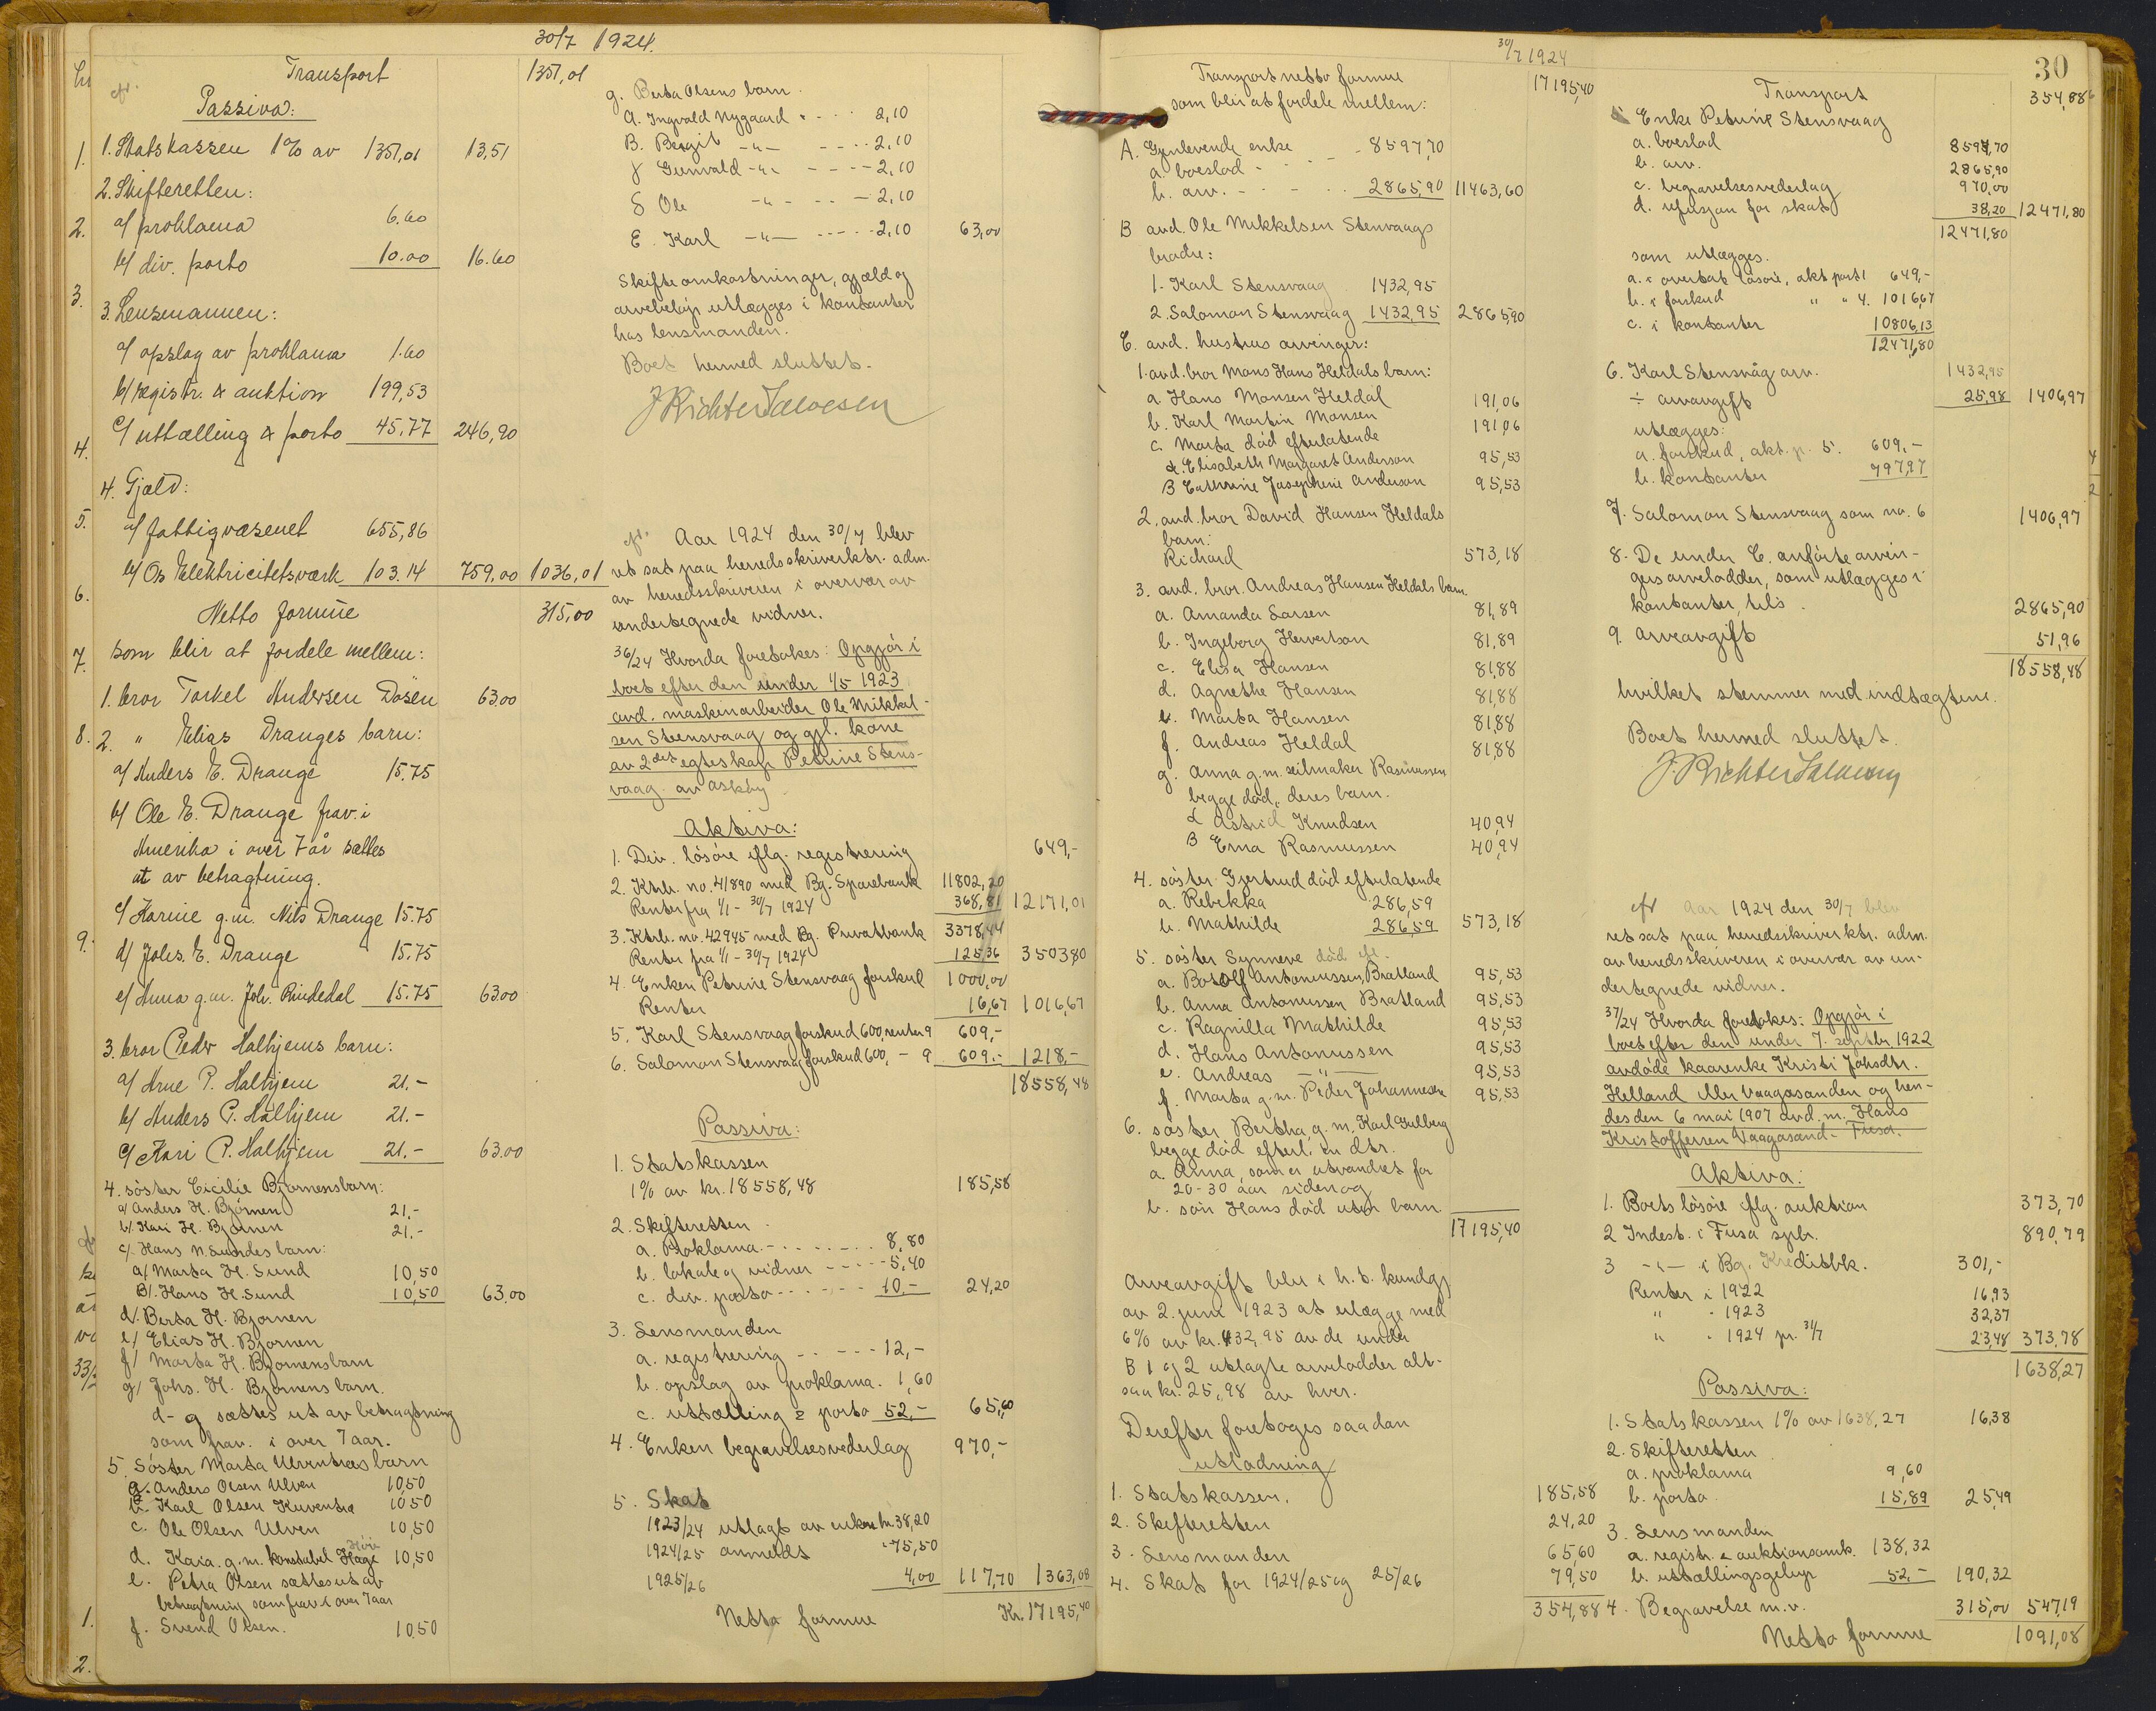 30/7 1924.
Transport 1351,01
Passiva:
1. Statskassen 1% av 1351,01 13,51
2. Skifteretten:
a/ proklama 6.60
b/ div. porto 10.00 16.60
3. Lensmannen:
a/ opslag av proklama 1.60
b/ registr. & auktion 199,53
c/ uttælling & porto 45.77 246,90
4. Gjæld:
a/ fattigvæsenet 655,86
b/ Os Elektricitetsværk 103.14 759.00 1036,01
Netto formue 315,00
som blir at fordele mellem:
1. bror Torkel Andersen Døsen 63.00
2. " Elias Dranges barn:
a/ Anders E. Drange 15.75
b/ Ole E. Drange frav. i
Amerika i over 7 år sættes
ut av betragtning.
c/ Karine g.m. Nils Drange 15.75
d/ Johs. E. Drange 15.75
e/ Anna g.m. Joh. Rindedal 15.75 63.00
3. bror Peder Halhjems barn:
a/ Arne P. Halhjem 21.-
b/ Anders P. Halhjem 21.-
c/ Kari P. Halhjem 21.- 63.00
4. søster Cicilie Bjørnens barn:
a/ Anders H. Bjørnen 21.-
b/. Kari H. Bjørnen 21.-
c/. Hans N. Sundes barn:
a/ Marta H. Sund 10,50
B/. Hans H. Sund 10,50 63.00
d/ Berta H. Bjørnen
e/ Elias H. Bjørnen
f/ Marta H. Bjørnens barn
g/ Johs. H. Bjørnens barn.
d - g sættes ut av betragtning
som frav. i over 7 aar.
5. Søster Marta Ulventræs barn
a. Anders Olsen Ulven 10,50
b. Karl Olsen Kuventræ 10,50
c. Ole Olsen Ulven 10,50
d. Kaia g.m. konstabel Hage 10,50
e. Petra Olsen sættes ut av
betragtning som frav. i over 7 aar
f. Svend Olsen. 10,50
g. Berta Olsens barn.
a. Ingvald Nygaard 2,10
B. Bergit -"- 2,10
γ Gunvald -"- 2,10
δ Ole -"- 2,10
E. Karl -"- 2,10 63,00
Skifteomkostninger, gjæld og
arvebeløp utlægges i kontanter
hos lensmanden.
Boet hermed sluttet.
J Richter Salvesen
Aar 1924 den 30/7 blev
ret sat paa herredsskriverktr. adm.
av herredsskriveren i overvær av
undertegnede vidner.
36/24 Hvorda foretokes: Opgjør i
boet efter den under 1/5 1923
avd. maskinarbeider Ole Mikkel-
sen Stensvaag og gjl. kone
av 2det egteskap Petrine Stens-
vaag av Askøy.
Aktiva:
1. Div. løsøre iflg. registrering 649,-
2. Ktrb. no. 41890 med Bg. Sparebank 11802,20
Renter fra 1/1 - 30/7 1924 368,81 12171,01
3. Ktrb. no. 42945 med Bg. Privatbank 3378,44
Renter fra 1/1 - 30/7 1924 125,36 3503,80
4. Enken Petrine Stensvaag forskud 1000,00
Renter 16,67 1016,67
5. Karl Stensvaag forskud 600, renter 9 609,-
6. Salomon Stensvaag forskud 600, - 9 609.- 1218,-
18558,48
Passiva:
1. Statskassen
1% av kr. 18558,48 185,58
2. Skifteretten.
a. Proklama 8,80
b. lokale og vidner 5,40
c. div. porto 10,- 24,20
3. Lensmanden
a. registrering 12,-
b. opslag av proklama. 1,60
c. uttælling & porto 52,- 65,60
4. Enken begravelsesvederlag 970,-
5. Skat
1923/24 utlagt av enken kr. 38,20
1924/25 anmeldt " 75,50
1925/26 4,00 117,70 1363,08
Netto formue Kr. 17195,40
30/7 1924
30
Transport netto formue 17195,40
som blir at fordele mellem:
A. Gjenlevende enke
a. boeslod 8597,70
b. arv. 2865,90 11463,60
B avd. Ole Mikkelsen Stensvaags
brødre:
1. Karl Stensvaag 1432,95
2. Salomon Stensvaag 1432,95 2865,90
C. avd. hustrus arvinger:
1. avd. bror Mons Hans Heldals barn:
a. Hans Monsen Heldal 191,06
b. Karl Martin Monsen 191,06
c. Marta død efterlatende
α. Elisabeth Margaret Anderson 95,53
B Cathrine Josephine Anderson 95,53
2. avd. bror David Hansen Heldals
barn:
Richard 573,18
3. avd. bror. Andreas Hansen Heldals barn.
a. Amanda Larsen 81,89
b. Ingeborg Hervertson 81,89
c. Elisa Hansen 81,88
d. Agnethe Hansen 81,88
e. Marta Hansen 81,88
f. Andreas Heldal 81,88
g. Anna g.m. seilmaker Rasmussen
begge død, deres barn.
α Astrid Knudsen 40,94
B Erna Rasmussen 40,94
4. søster Gjertrud død efterlatende
a. Rebekka 286,59
b. Mathilde 286,59 573,18
5. søster Synneve død eft.
a. Botolf Antonussen Bratland 95,53
b. Anna Antonussen Bratland 95,53
c. Ragnilla Mathilde 95,53
d. Hans Antonussen 95,53
e. Andreas -"- 95,53
f. Marta g.m. Peder Johannesen 95,53
6. søster Bertha, g.m. Karl Gulberg
begge død efterl. en dtr.
a. Anna, som er utvandret for
20-30 aar siden og
b. søn Hans død uten barn.
17195,40
Arveavgift blir i h.t. kundgj.
av 2. juni 1923 at erlægge med
6% av kr. 432,95 av de under
B 1 og 2 utlagte arvelodder alt-
saa kr. 25,98 av hver.
Derefter foretoges saadan
utlodning
1. Statskassen. 185,58
2. Skifteretten 24,20
3. Lensmanden 65,60
4. Skat for 1924/25 og 25/26 79,50
354,88
Transport 354,88
5 Enke Petrine Stensvaag
a. boeslod 8597,70
b. arv. 2865,90
c. begravelsesvederlag 970,00
d. refusjon for skat 38,20 12471,80
12471,80
som utlægges.
a. i overtat løsøre, akt. post 1 649,-
b. i forskud " " 4. 1016,67
c. i kontanter 10806,13
12471,80
6. Karl Stensvåg arv. 1432,95
÷ arveavgift 25,98 1406,97
utlægges:
a. forskud, akt. p. 5. 609,-
b. kontanter 797,97
7. Salomon Stensvaag som no. 6 1406,97
8. De under C. anførte arvin-
gers arvelodder, som utlægges i
kontanter, tils. 2865,90
9. Arveavgift 51,96
18558,48
hvilket stemmer med indtægtene.
Boet hermed sluttet.
J. Richter Salvesen
Aar 1924 den 30/7 blev
ret sat paa herredsskriverktr. adm.
av herredsskriveren i overvær av un-
dertegnede vidner.
37/24 Hvorda foretokes: Opgjør i
boet efter den under 7. septbr. 1922
avdøde kaarenke Kristi Johsdtr.
Helland eller Vaagasanden og hen-
des den 6 mai 1907 avd. m. Hans
Kristoffersen Vaagasand - Fusa.
Aktiva:
1. Boets løsøre iflg. auktion 373,70
2 Indest. i Fusa spb. 890,79
3 -"- i Bg. Kreditbk. 301,-
Renter i 1922 16,93
" " 1923 32,37
" " 1924 pr. 31/7 23,48 373,78
1638,27
Passiva:
1. Statskassen 1% av 1638,27 16,38
2. Skifteretten
a. proklama 9,60
b. porto. 15,89 25,49
3. Lensmanden
a. registr. & auktionsomk. 138,32
b. uttællingsgebyr 52,- 190,32
4. Begravelse m.v. 315,00 547,19
Netto formue 1091,08